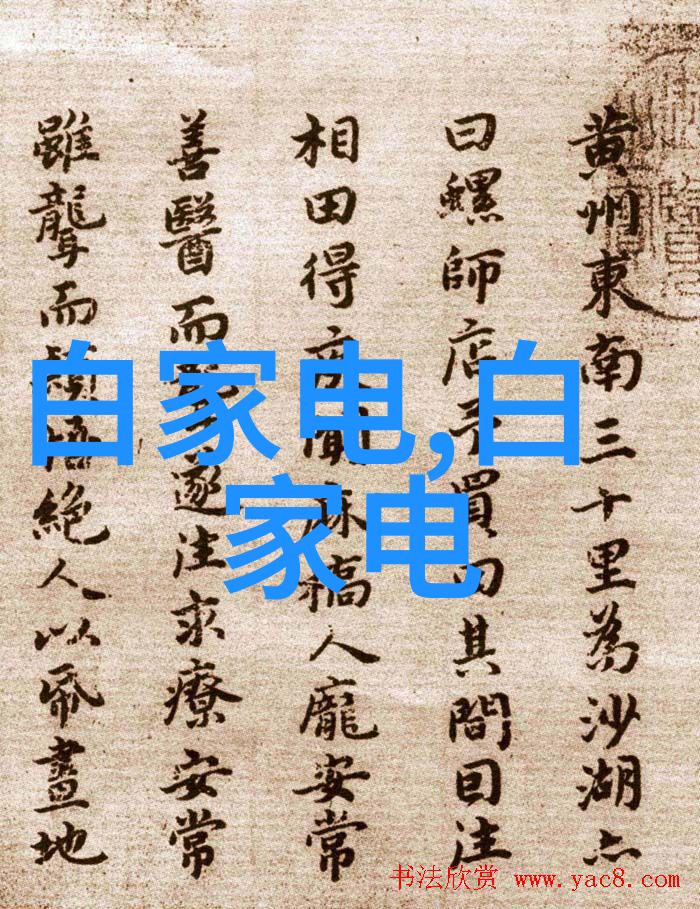 黄州東南三十里為沙湖亦
曰螺師店予買田其間因往
相田得疾聞麻橋人龐安常
善醫而聾遂往求療安常
雖聾而穎悟絕人以紙畫地
自家电,白
家电
书法欣赏 www.yac8.com